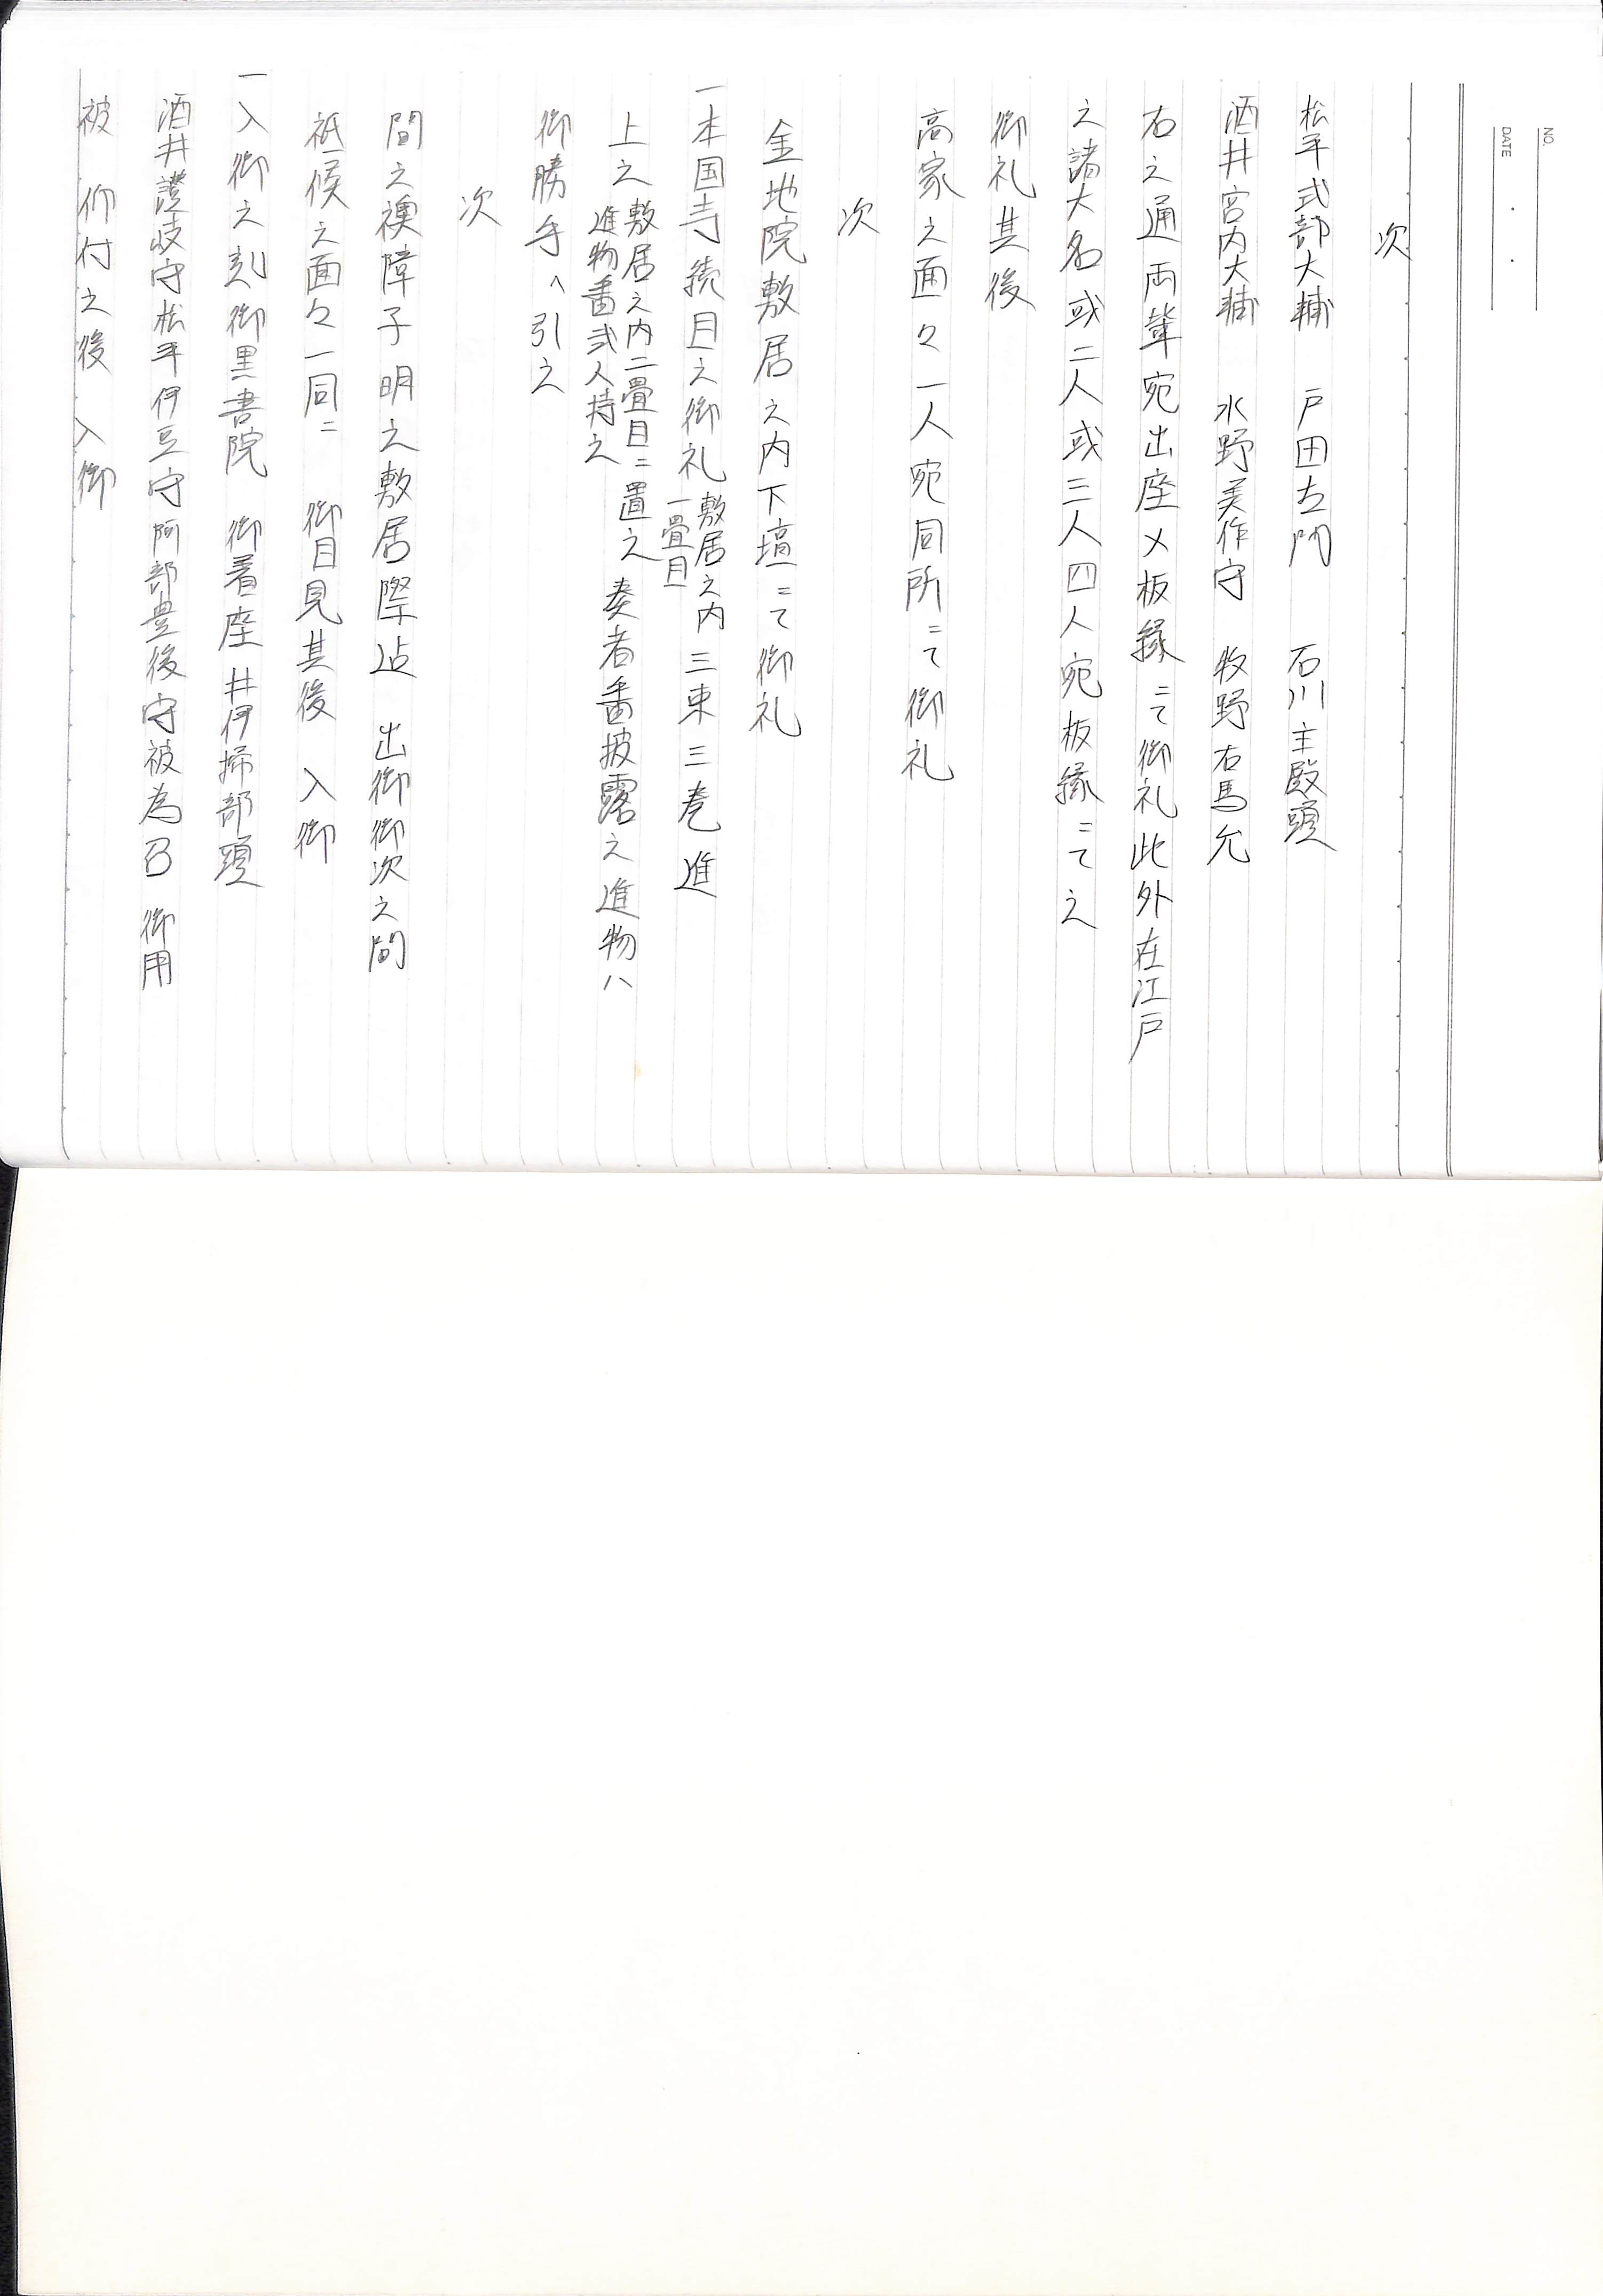 NO.
DATE ・ ・
次
松平式部大輔 戸田左門 石川主殿頭
酒井宮内大輔 水野美作守 牧野右馬允
右之通両輩宛出座〆板縁ニて御礼此外在江戸
之諸大名或二人或三人四人宛板縁ニて之
御礼其後
高家之面々一人宛同所ニて御礼
次
金地院敷居之内下壇ニて御礼
一本国寺続目之御礼敷居之内一畳目三束三巻進
上之敷居之内二畳目ニ置之進物番弐人持之奏者番披露之進物ハ
御勝手へ引之
次
間之襖障子明之敷居際迠 出御御次之間
祗候之面々一同ニ 御目見其後 入御
一入御之刻御黒書院 御着座井伊掃部頭
酒井讃岐守松平伊豆守阿部豊後守被為召 御用
被 仰付之後 入御